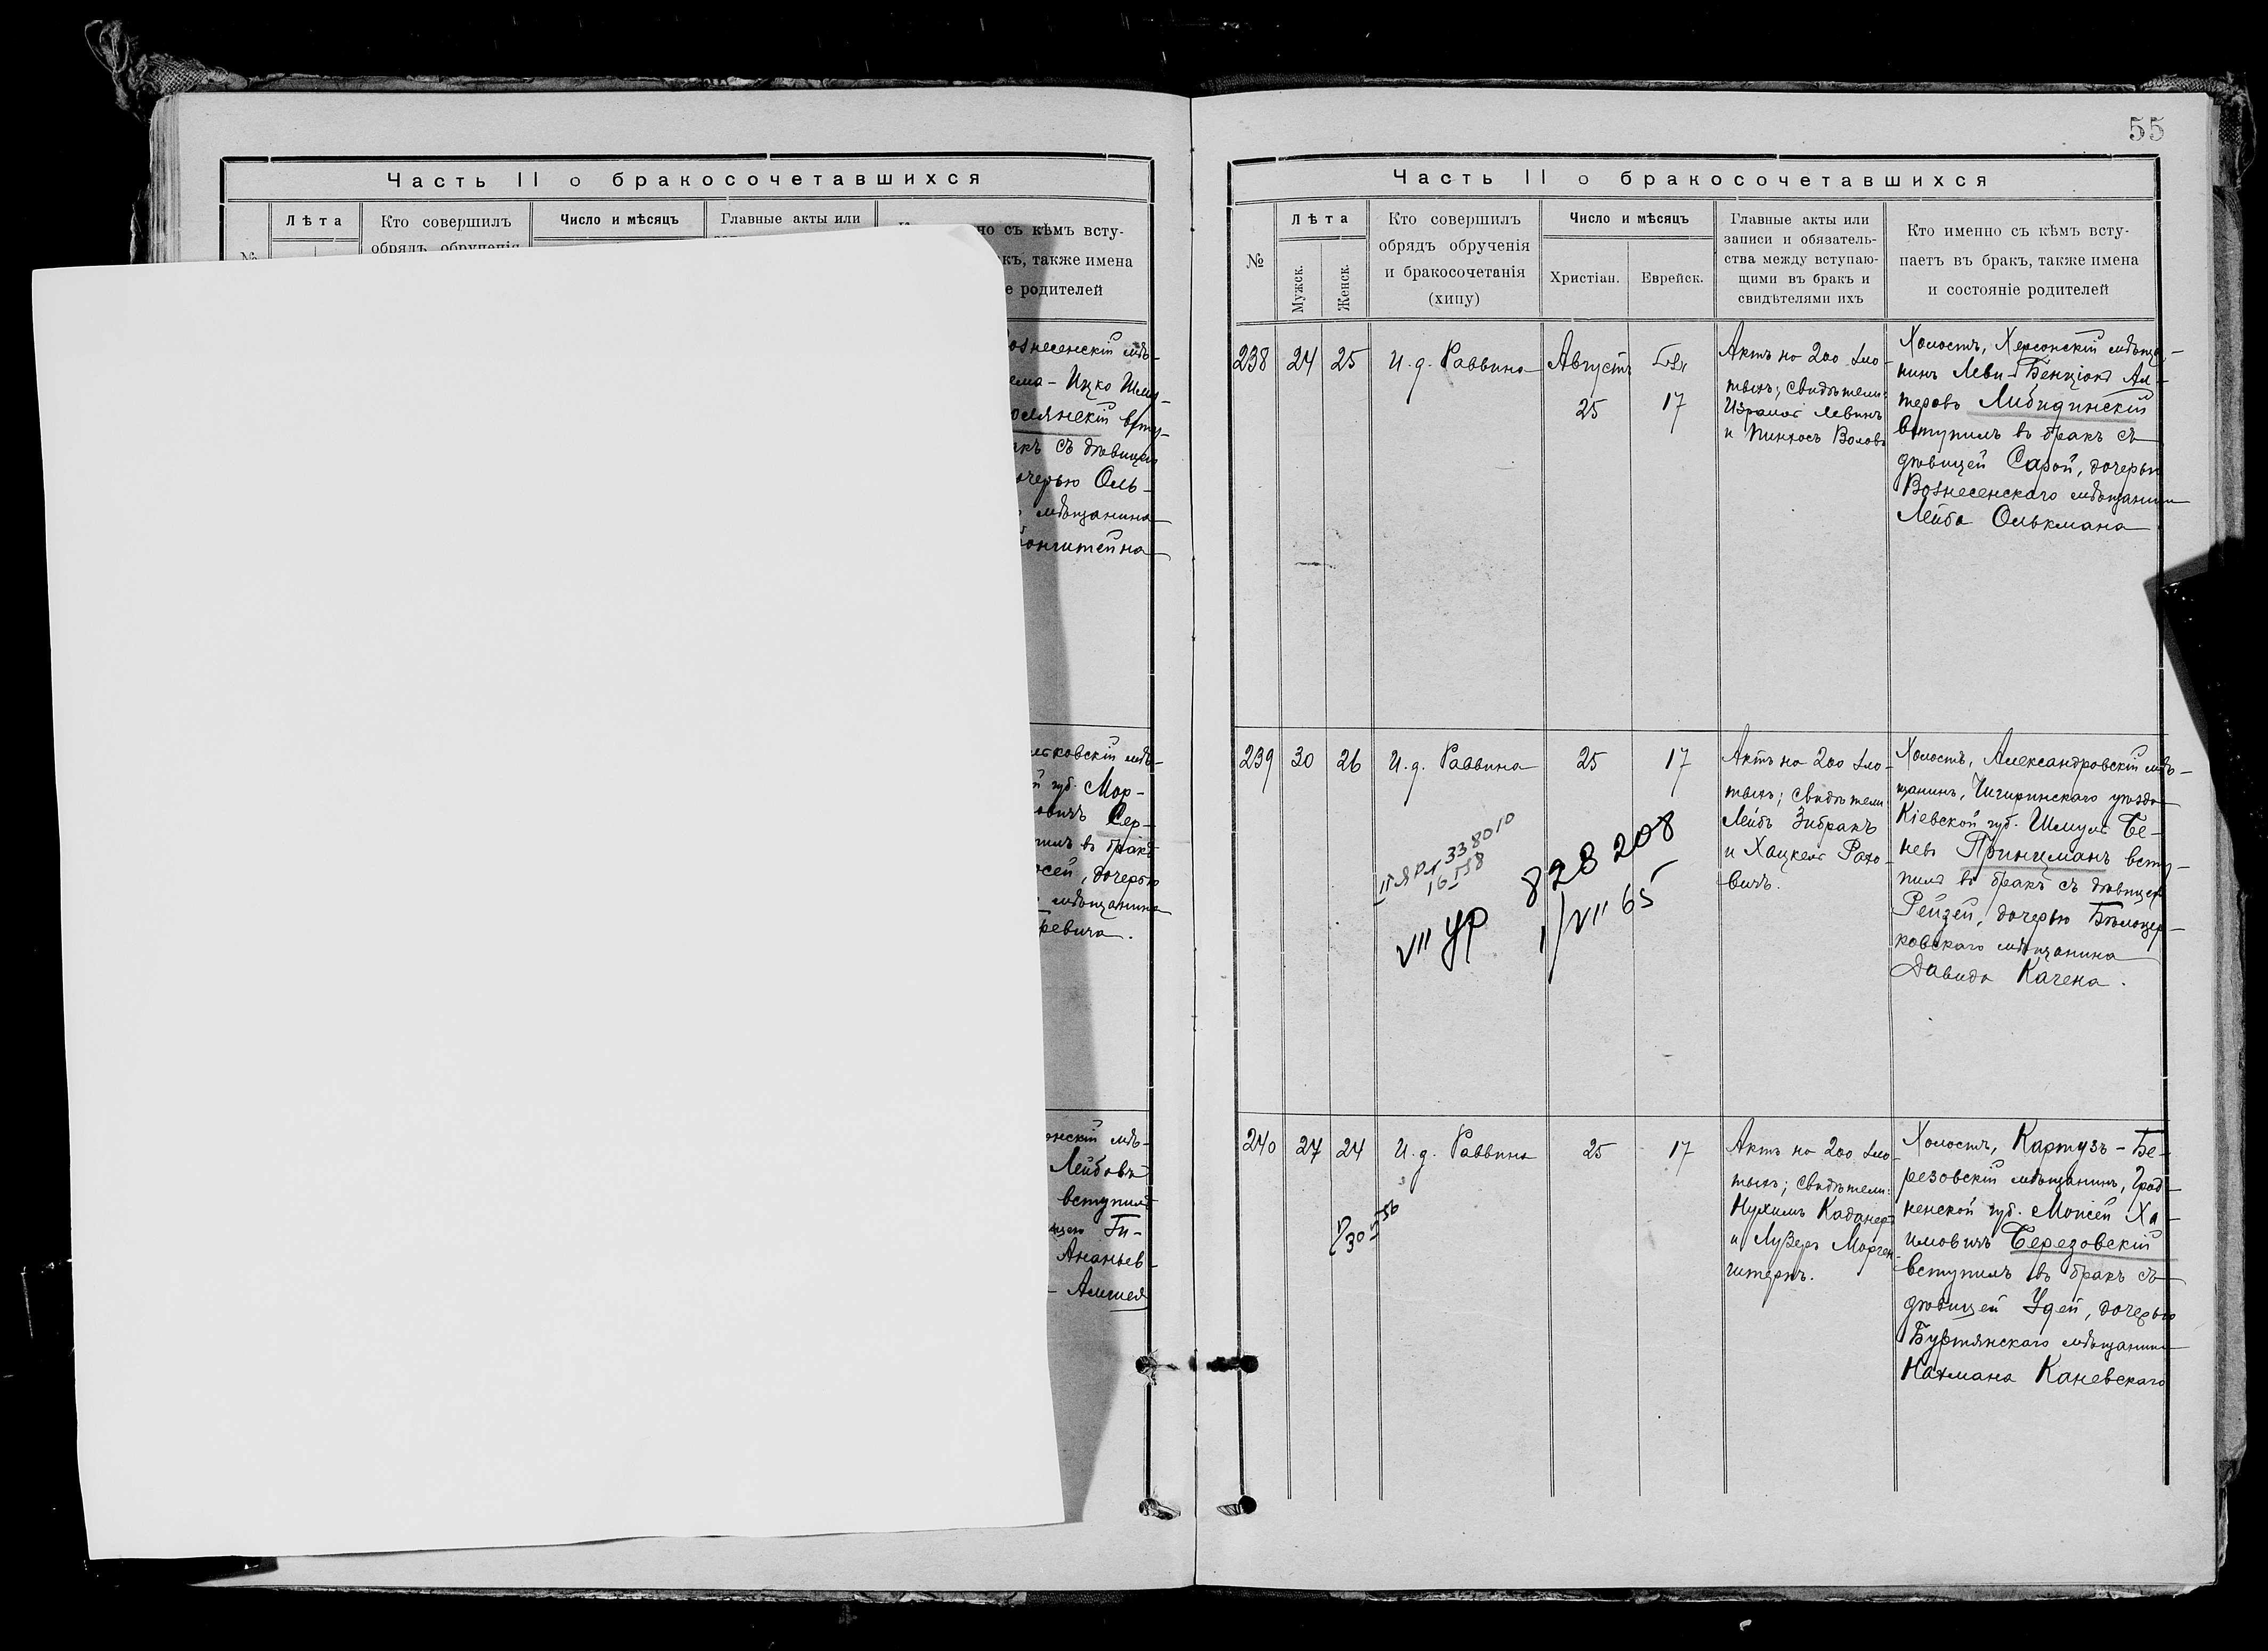 Часть II о бракосочетавшихся
Лѣта
Кто совершилъ
Число и мѣсяцъ
Главные акты или
но съ кѣмъ всту-
къ, также имена
е родителей
ознесенскій мѣ-
ема-Ицко Шму-
олянскій всту-
акъ съ дѣвицей
очерью Оль-
мѣщанина
онштейна
й губ. Мор-
овичъ Сер-
пилъ въ бракъ
осей, дочерью
мѣщанина
ревича.
онскій мѣ-
Лейбовъ
вступилъ
ицею Ги-
Ананьев-
55
Часть II о бракосочетавшихся
№
Лѣта
Мужск.
Женск.
Кто совершилъ
обрядъ обрученія
и бракосочетанія
(хипу)
Число и мѣсяцъ
Христіан.
Еврейск.
Главные акты или
записи и обязатель-
ства между вступаю-
щими въ бракъ и
свидѣтелями ихъ
Кто именно съ кѣмъ всту-
паетъ въ бракъ, также имена
и состояніе родителей
238
24
25
И. д. Раввина
Августъ
25
17
Актъ на 200 зло-
тыхъ; свидѣтели:
Израиль Левинъ
и Пинхосъ Воловъ
Холостъ, Херсонскій мѣща-
нинъ Леви-Бенціонъ Ал-
теровъ Либидинскій
вступилъ въ бракъ съ
дѣвицей Сарой, дочерью
Вознесенскаго мѣщанина
Лейба Олькмана
239
30
26
И. д. Раввина
25
17
Актъ на 200 зло-
тыхъ; свидѣтели
Лейбъ Зибракъ
и Хацкель Рахо-
вичъ.
Холостъ, Александровскій мѣ-
щанинъ, Чигиринскаго уѣзда
Кіевской губ. Шмуль Бе-
невъ Принцманъ всту-
пилъ въ бракъ съ дѣвицей
Рейзей, дочерью Бѣлоцер-
ковскаго мѣщанина
Давида Качена.
338010
16 558
VII УР 828208
1/VII 65
240
27
24
И. д. Раввина
25
17
Актъ на 200 зло-
тыхъ; свидѣтели:
Нухимъ Каданеръ
и Лузеръ Морген-
штернъ.
Холостъ, Картузъ-Бе-
резовскій мѣщанинъ, Грод-
ненской губ. Моисей Ха-
имовичъ Березовскій
вступилъ въ бракъ съ
дѣвицей Удей, дочерью
Буртянскаго мѣщанина
Нахмана Каневскаго